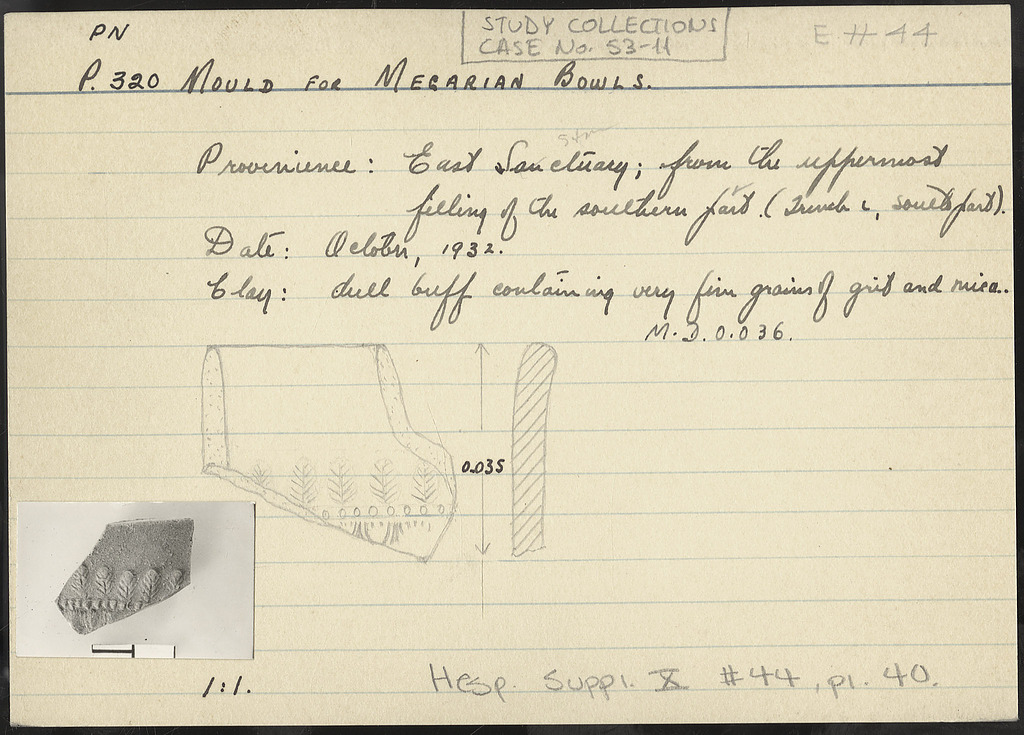 PN
STUDY COLLECTIONS
CASE No. S3-11
E # 44
P. 320 MOULD FOR MEGARIAN BOWLS.
Provenience: East Sanctuary; from the uppermost
filling of the southern part. (Trench , South part).
Date: October, 1932.
Clay: dull buff containing very fine grains of grit and mica.
M.D. 0.036.
0.035
1:1.
Hesp. Suppl. X #44, pl. 40.